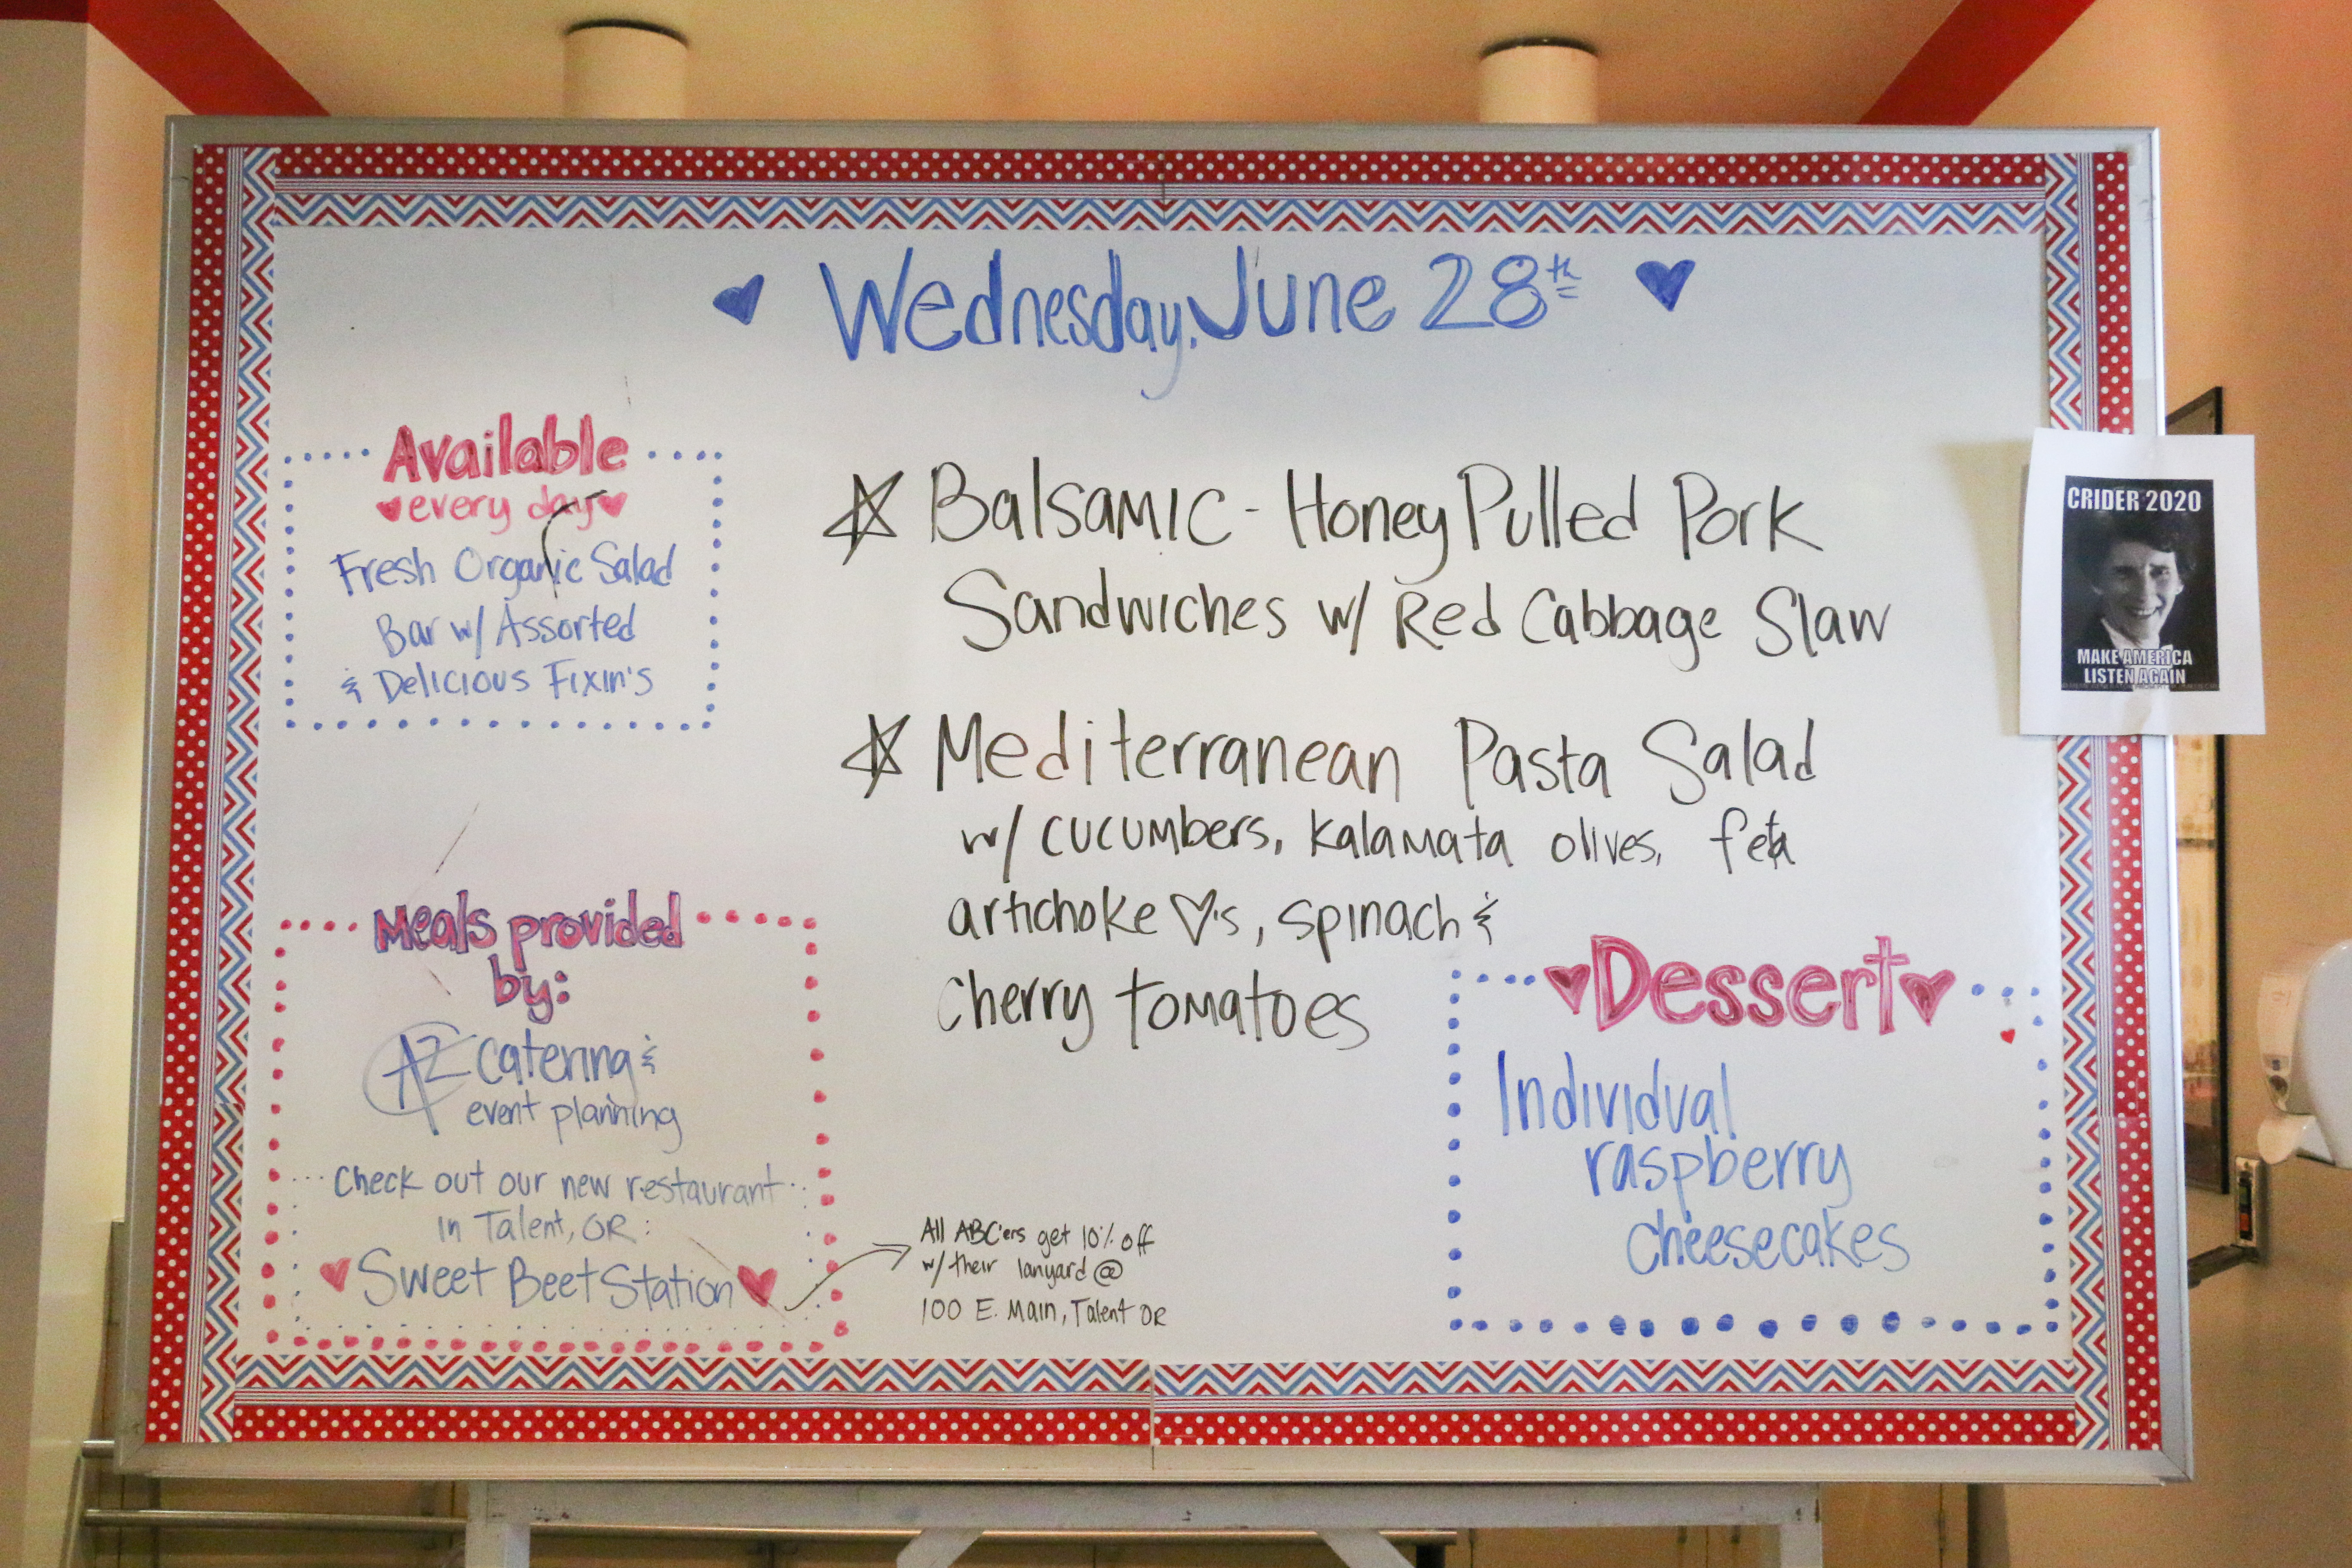 Wednesday, June 28th
Available
every day
Fresh Organic Salad
Bar w/ Assorted
& Delicious Fixin's
Balsamic-Honey Pulled Pork
Sandwiches w/ Red Cabbage Slaw
Mediterranean Pasta Salad
w/ cucumbers, kalamata olives, feta
artichoke ♡'s, spinach &
cherry tomatoes
Meals provided
by:
AZ catering &
event planning
Check out our new restaurant
in Talent, OR:
Sweet Beet Station
All ABC'ers get 10% off
w/ their lanyard @
100 E. Main, Talent OR
Dessert
Individual
raspberry
cheesecakes
CRIDER 2020
MAKE AMERICA
LISTEN AGAIN